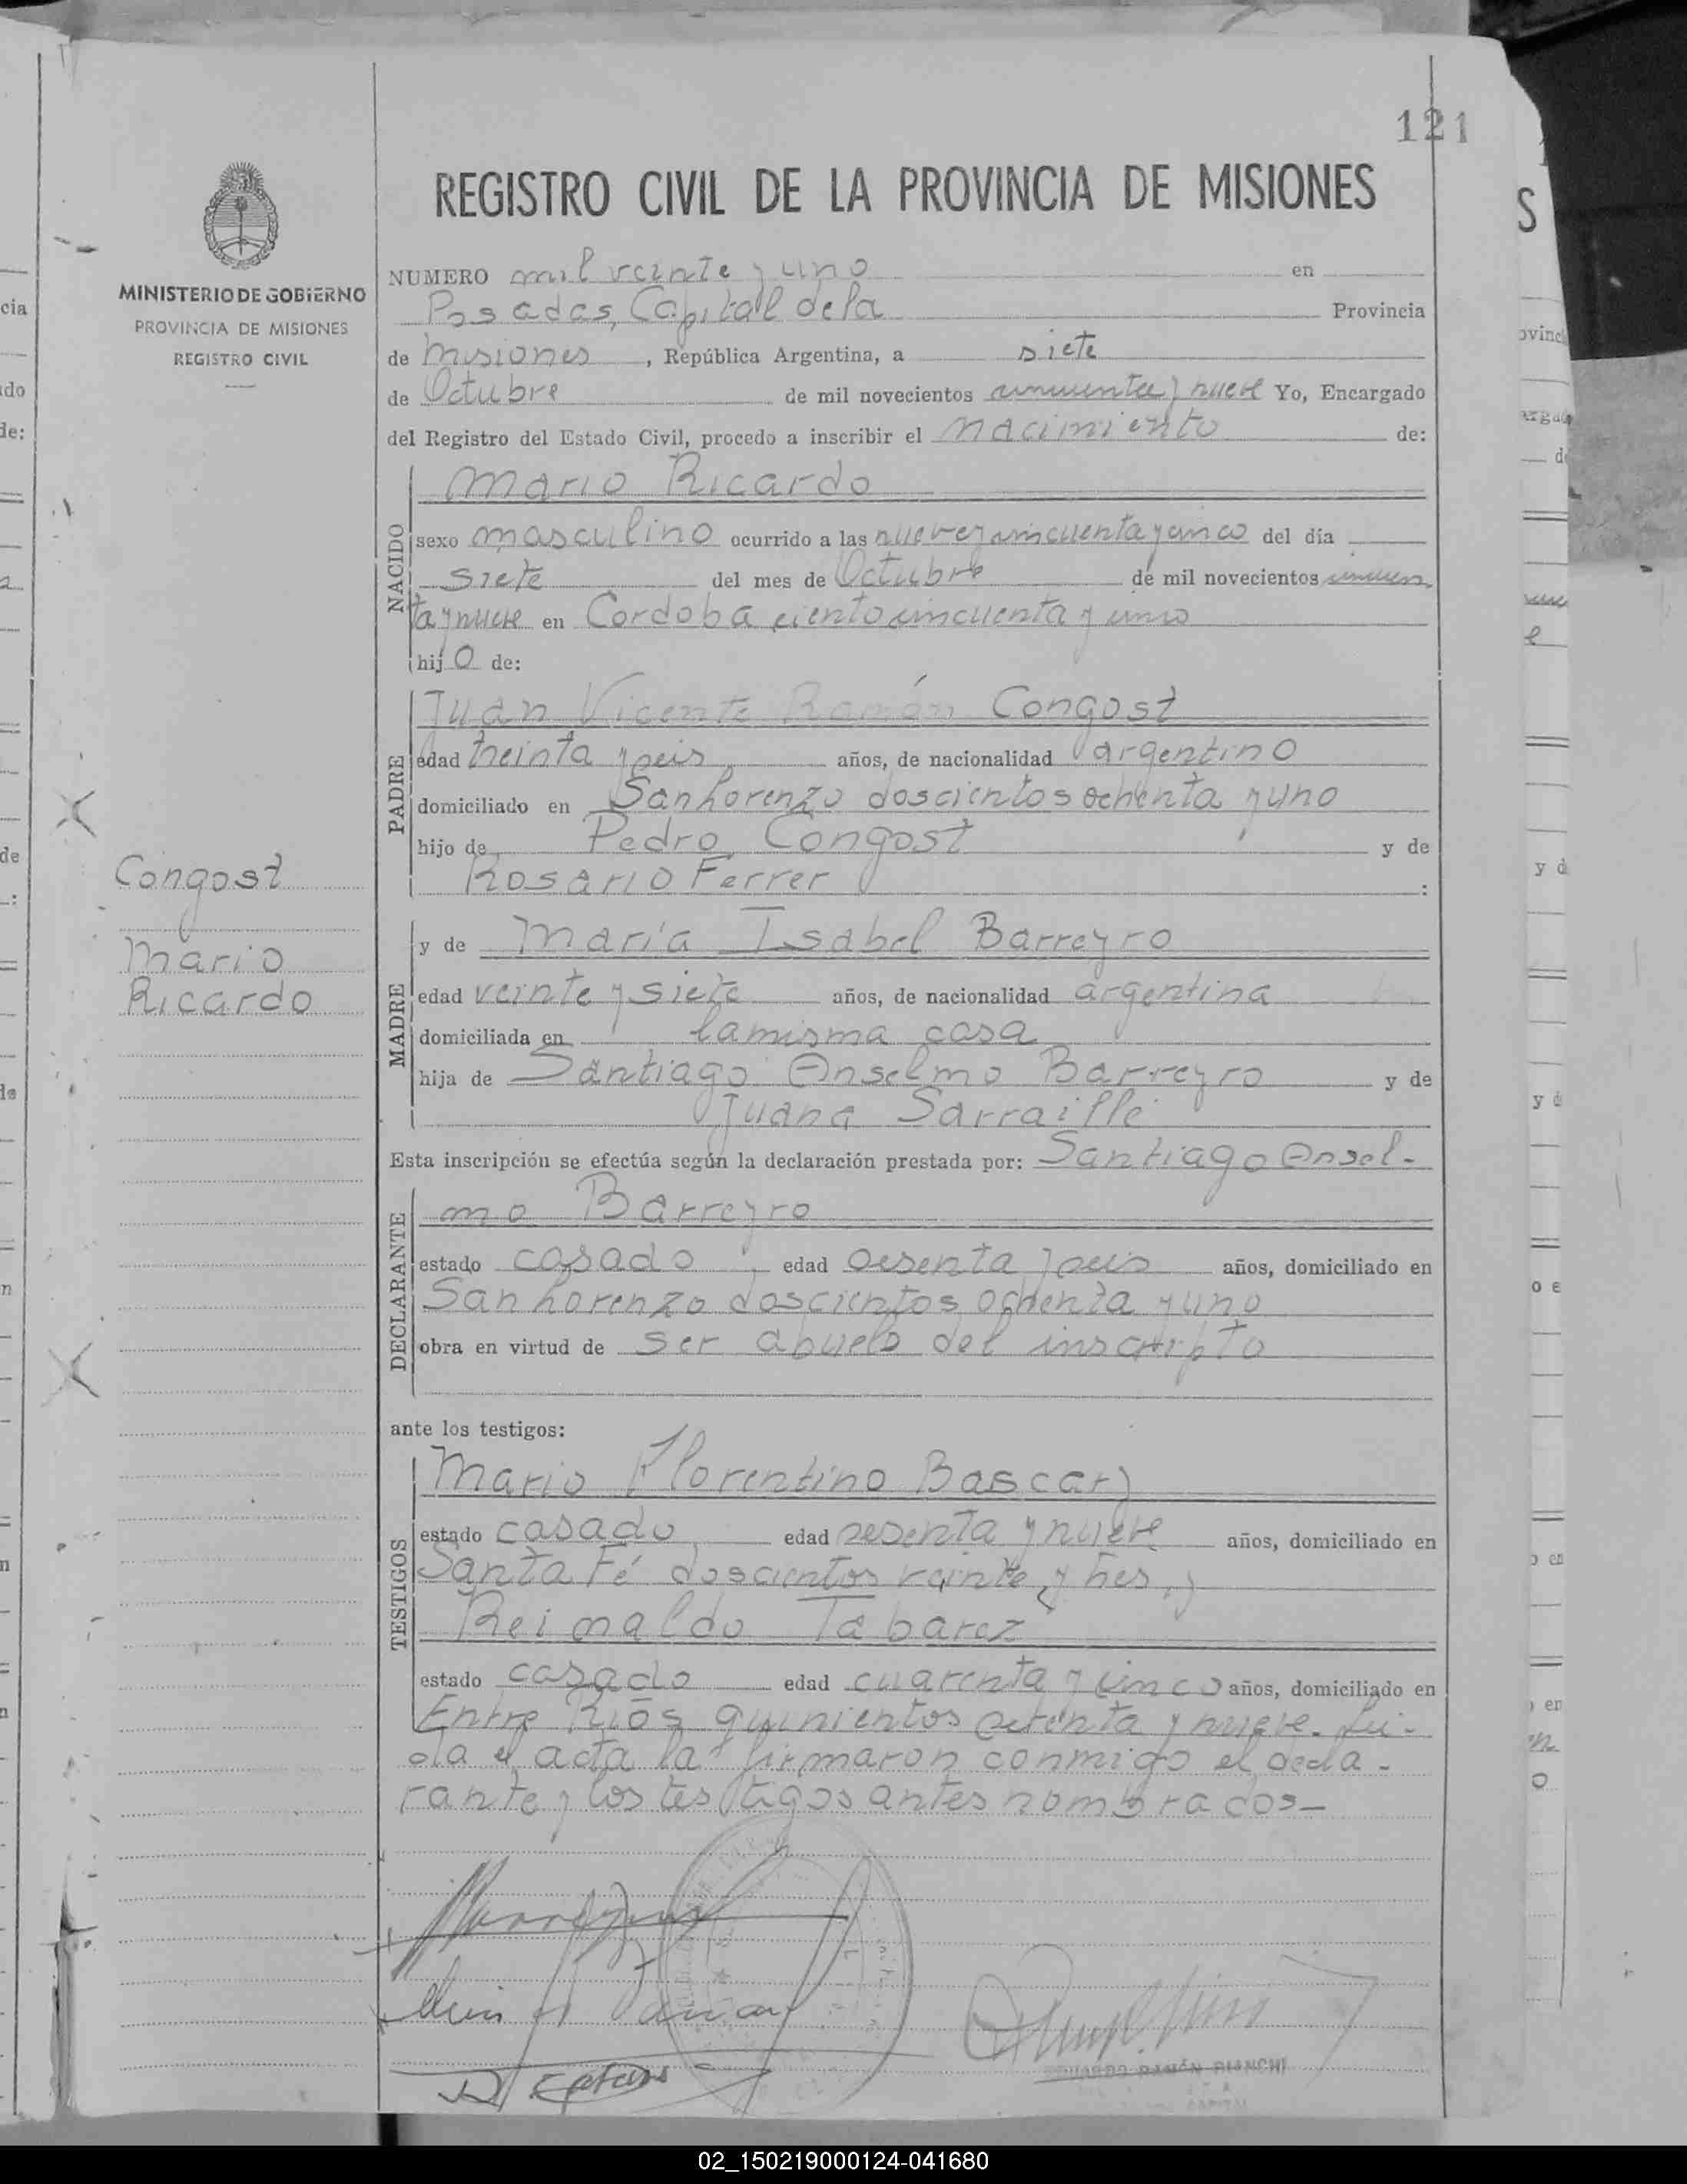 121
REGISTRO CIVIL DE LA PROVINCIA DE MISIONES
MINISTERIO DE GOBIERNO
PROVINCIA DE MISIONES
REGISTRO CIVIL
NUMERO mil veinte y uno en
Posadas, Capital de la Provincia
de Misiones, República Argentina, a siete
de Octubre de mil novecientos cincuenta y nueve Yo, Encargado
del Registro del Estado Civil, procedo a inscribir el nacimiento de:
NACIDO
Mario Ricardo
sexo masculino ocurrido a las nueve y cincuenta y cinco del día
siete del mes de Octubre de mil novecientos cincuen
ta y nueve en Cordoba ciento cincuenta y uno
hijo de:
PADRE
Juan Vicente Ramón Congost
edad treinta y seis años, de nacionalidad argentino
domiciliado en San Lorenzo doscientos ochenta y uno
hijo de Pedro Congost y de
Rosario Ferrer :
Congost
Mario
Ricardo
MADRE
y de María Isabel Barreyro
edad veinte y siete años, de nacionalidad argentina
domiciliada en la misma casa
hija de Santiago Anselmo Barreyro y de
Juana Sarraillé
Esta inscripción se efectúa según la declaración prestada por: Santiago Ansel-
DECLARANTE
mo Barreyro
estado casado, edad sesenta y seis años, domiciliado en
San Lorenzo doscientos ochenta y uno
obra en virtud de ser abuelo del inscripto
ante los testigos:
TESTIGOS
Mario Florentino Bascary
estado casado, edad sesenta y nueve años, domiciliado en
Santa Fé doscientos veinte y tres, y
Reinaldo Tabarez
estado casado edad cuarenta y cinco años, domiciliado en
Entre Ríos quinientos setenta y nueve. Lei-
da el acta la firmaron conmigo el decla-
rante y los testigos antes nombrados-
RAMÓN BIANCHI
02_150219000124-041680